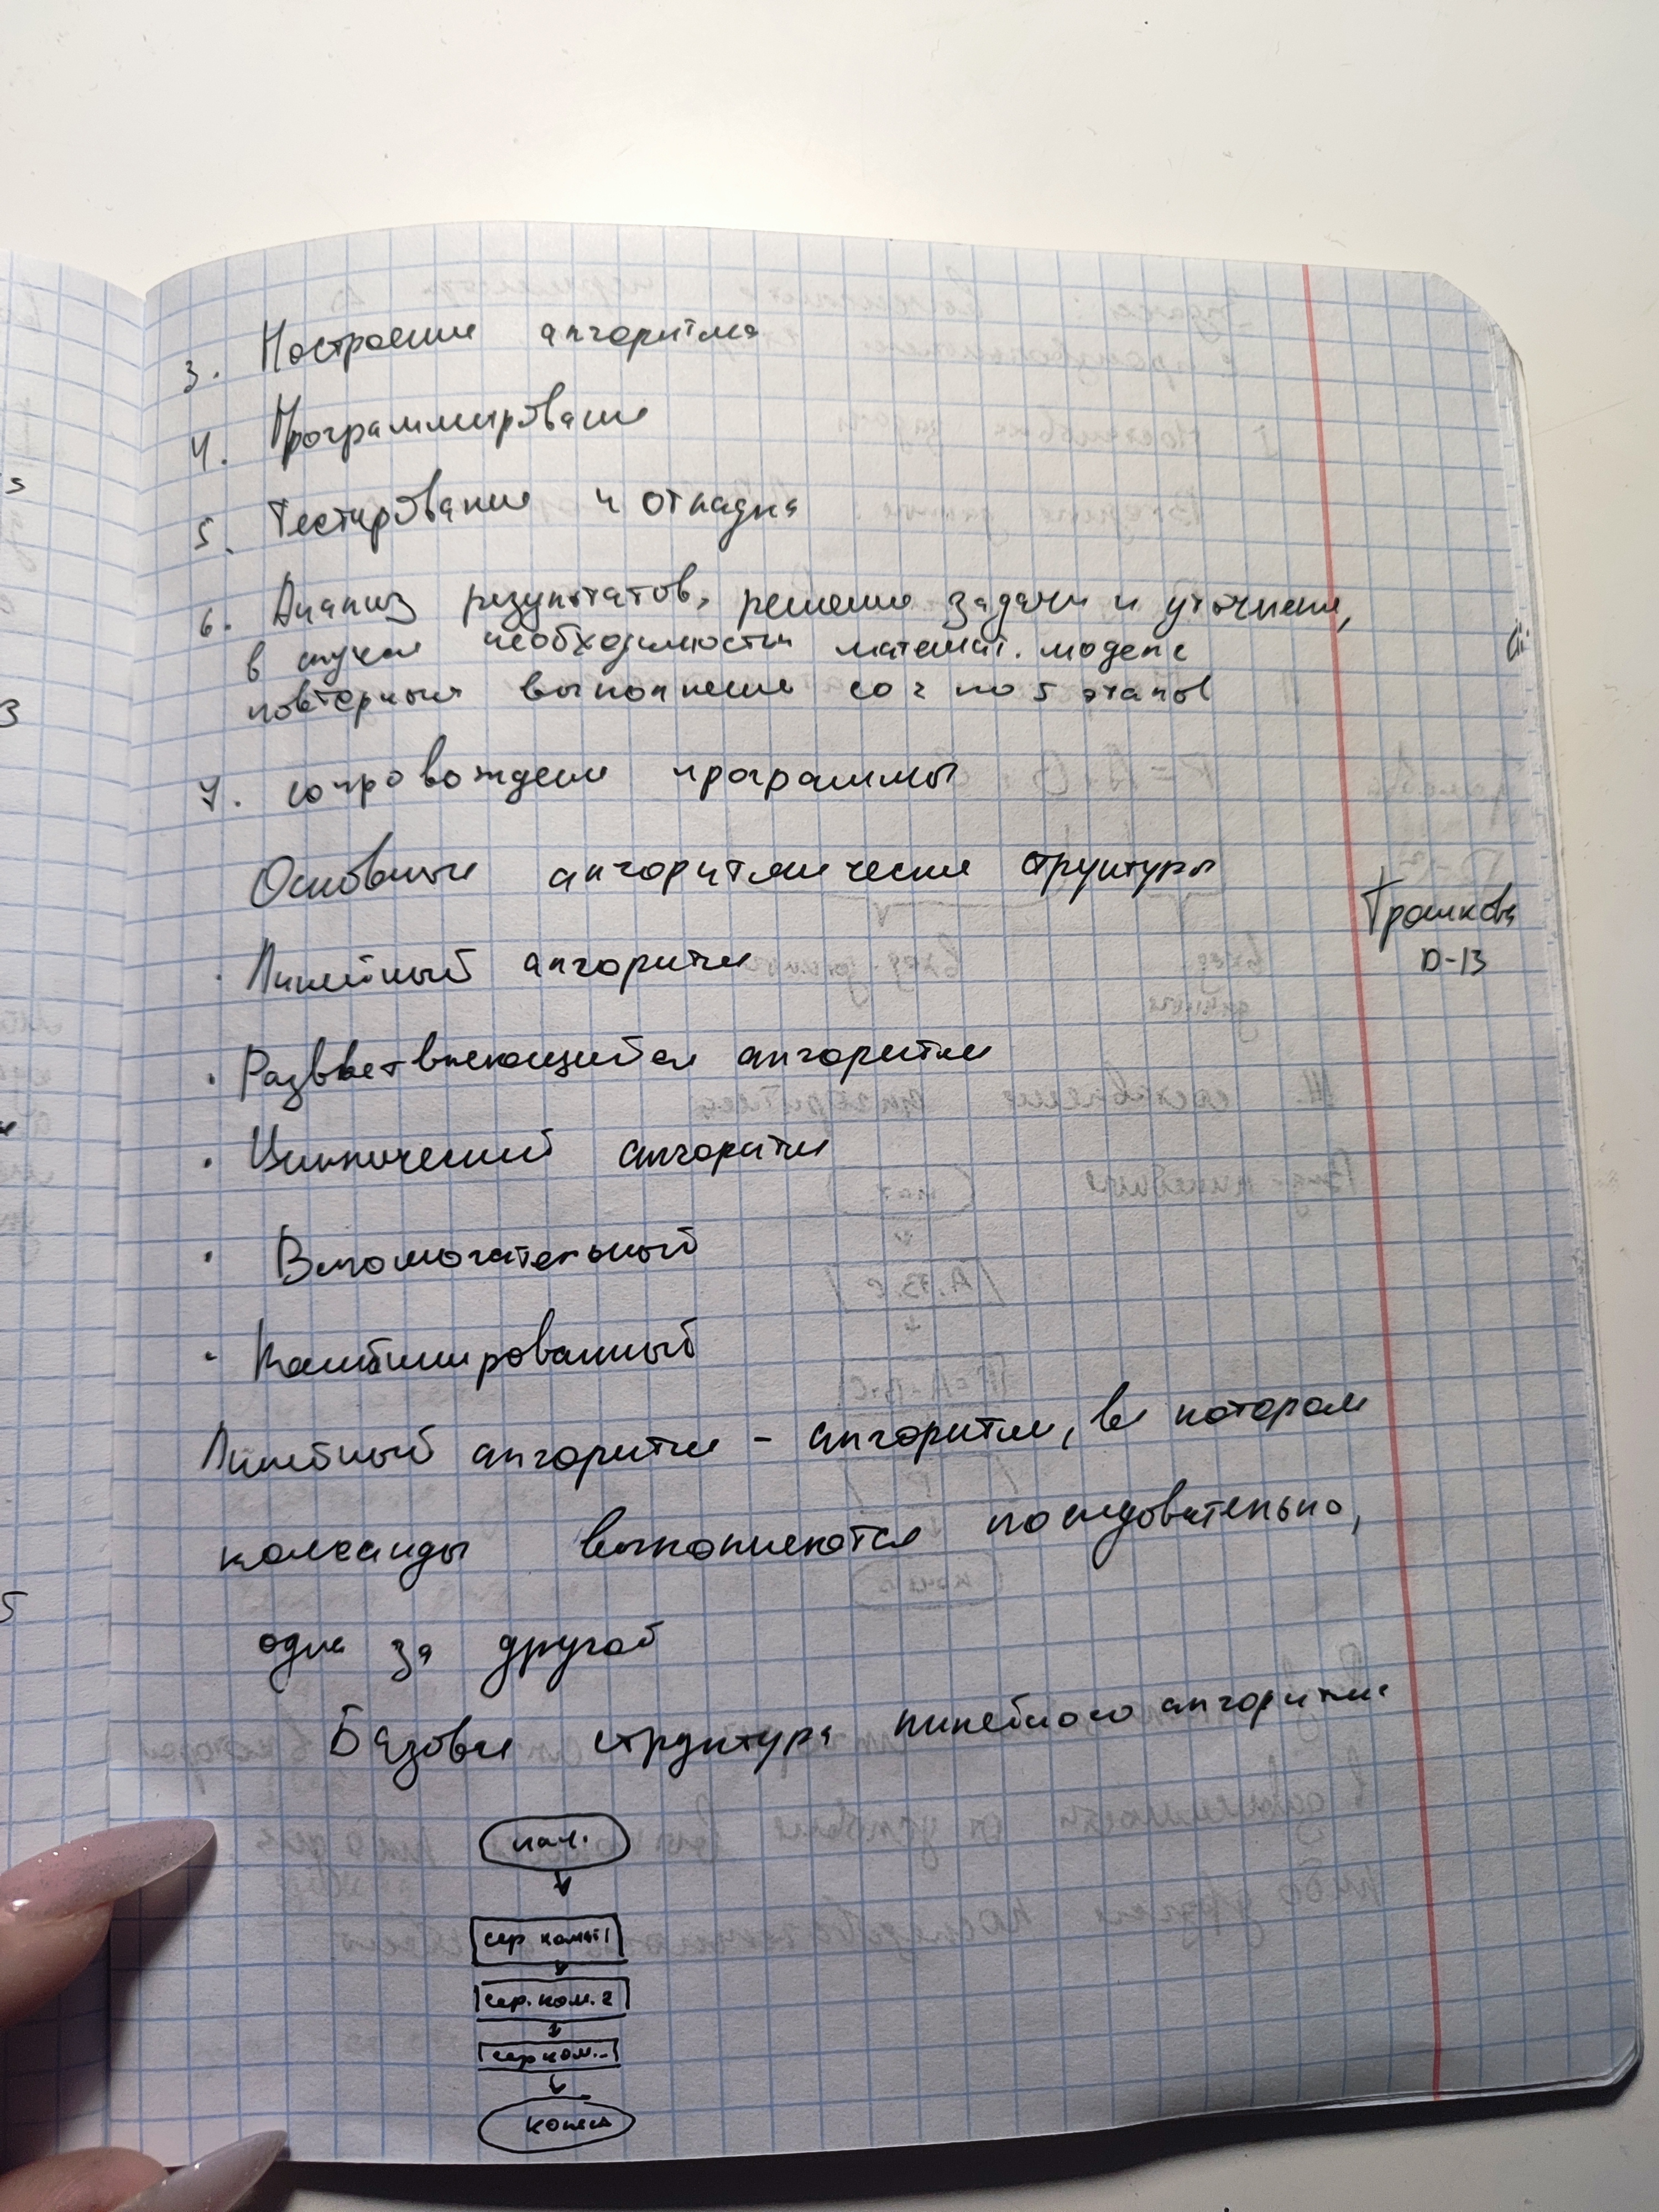 3. Построение алгоритма
4. Программирование
5. Тестирование и отладка
6. Анализ результатов, решение задачи и уточнение,
в случае необходимости математ. модели
повторный выполнение со 2 по 5 этапов
7. сопровождение программы
Основные алгоритмические структуры
Трошкова
D-13
· Линейный алгоритм
· Разветвляющийся алгоритм
· Циклический алгоритм
· Вспомогательный
· Комбинированный
Линейный алгоритм - алгоритм, в котором
команды выполняются последовательно,
одна за другой
Базовая структура линейного алгоритма
нач.
сер. ком. 2
сер ком...
конец